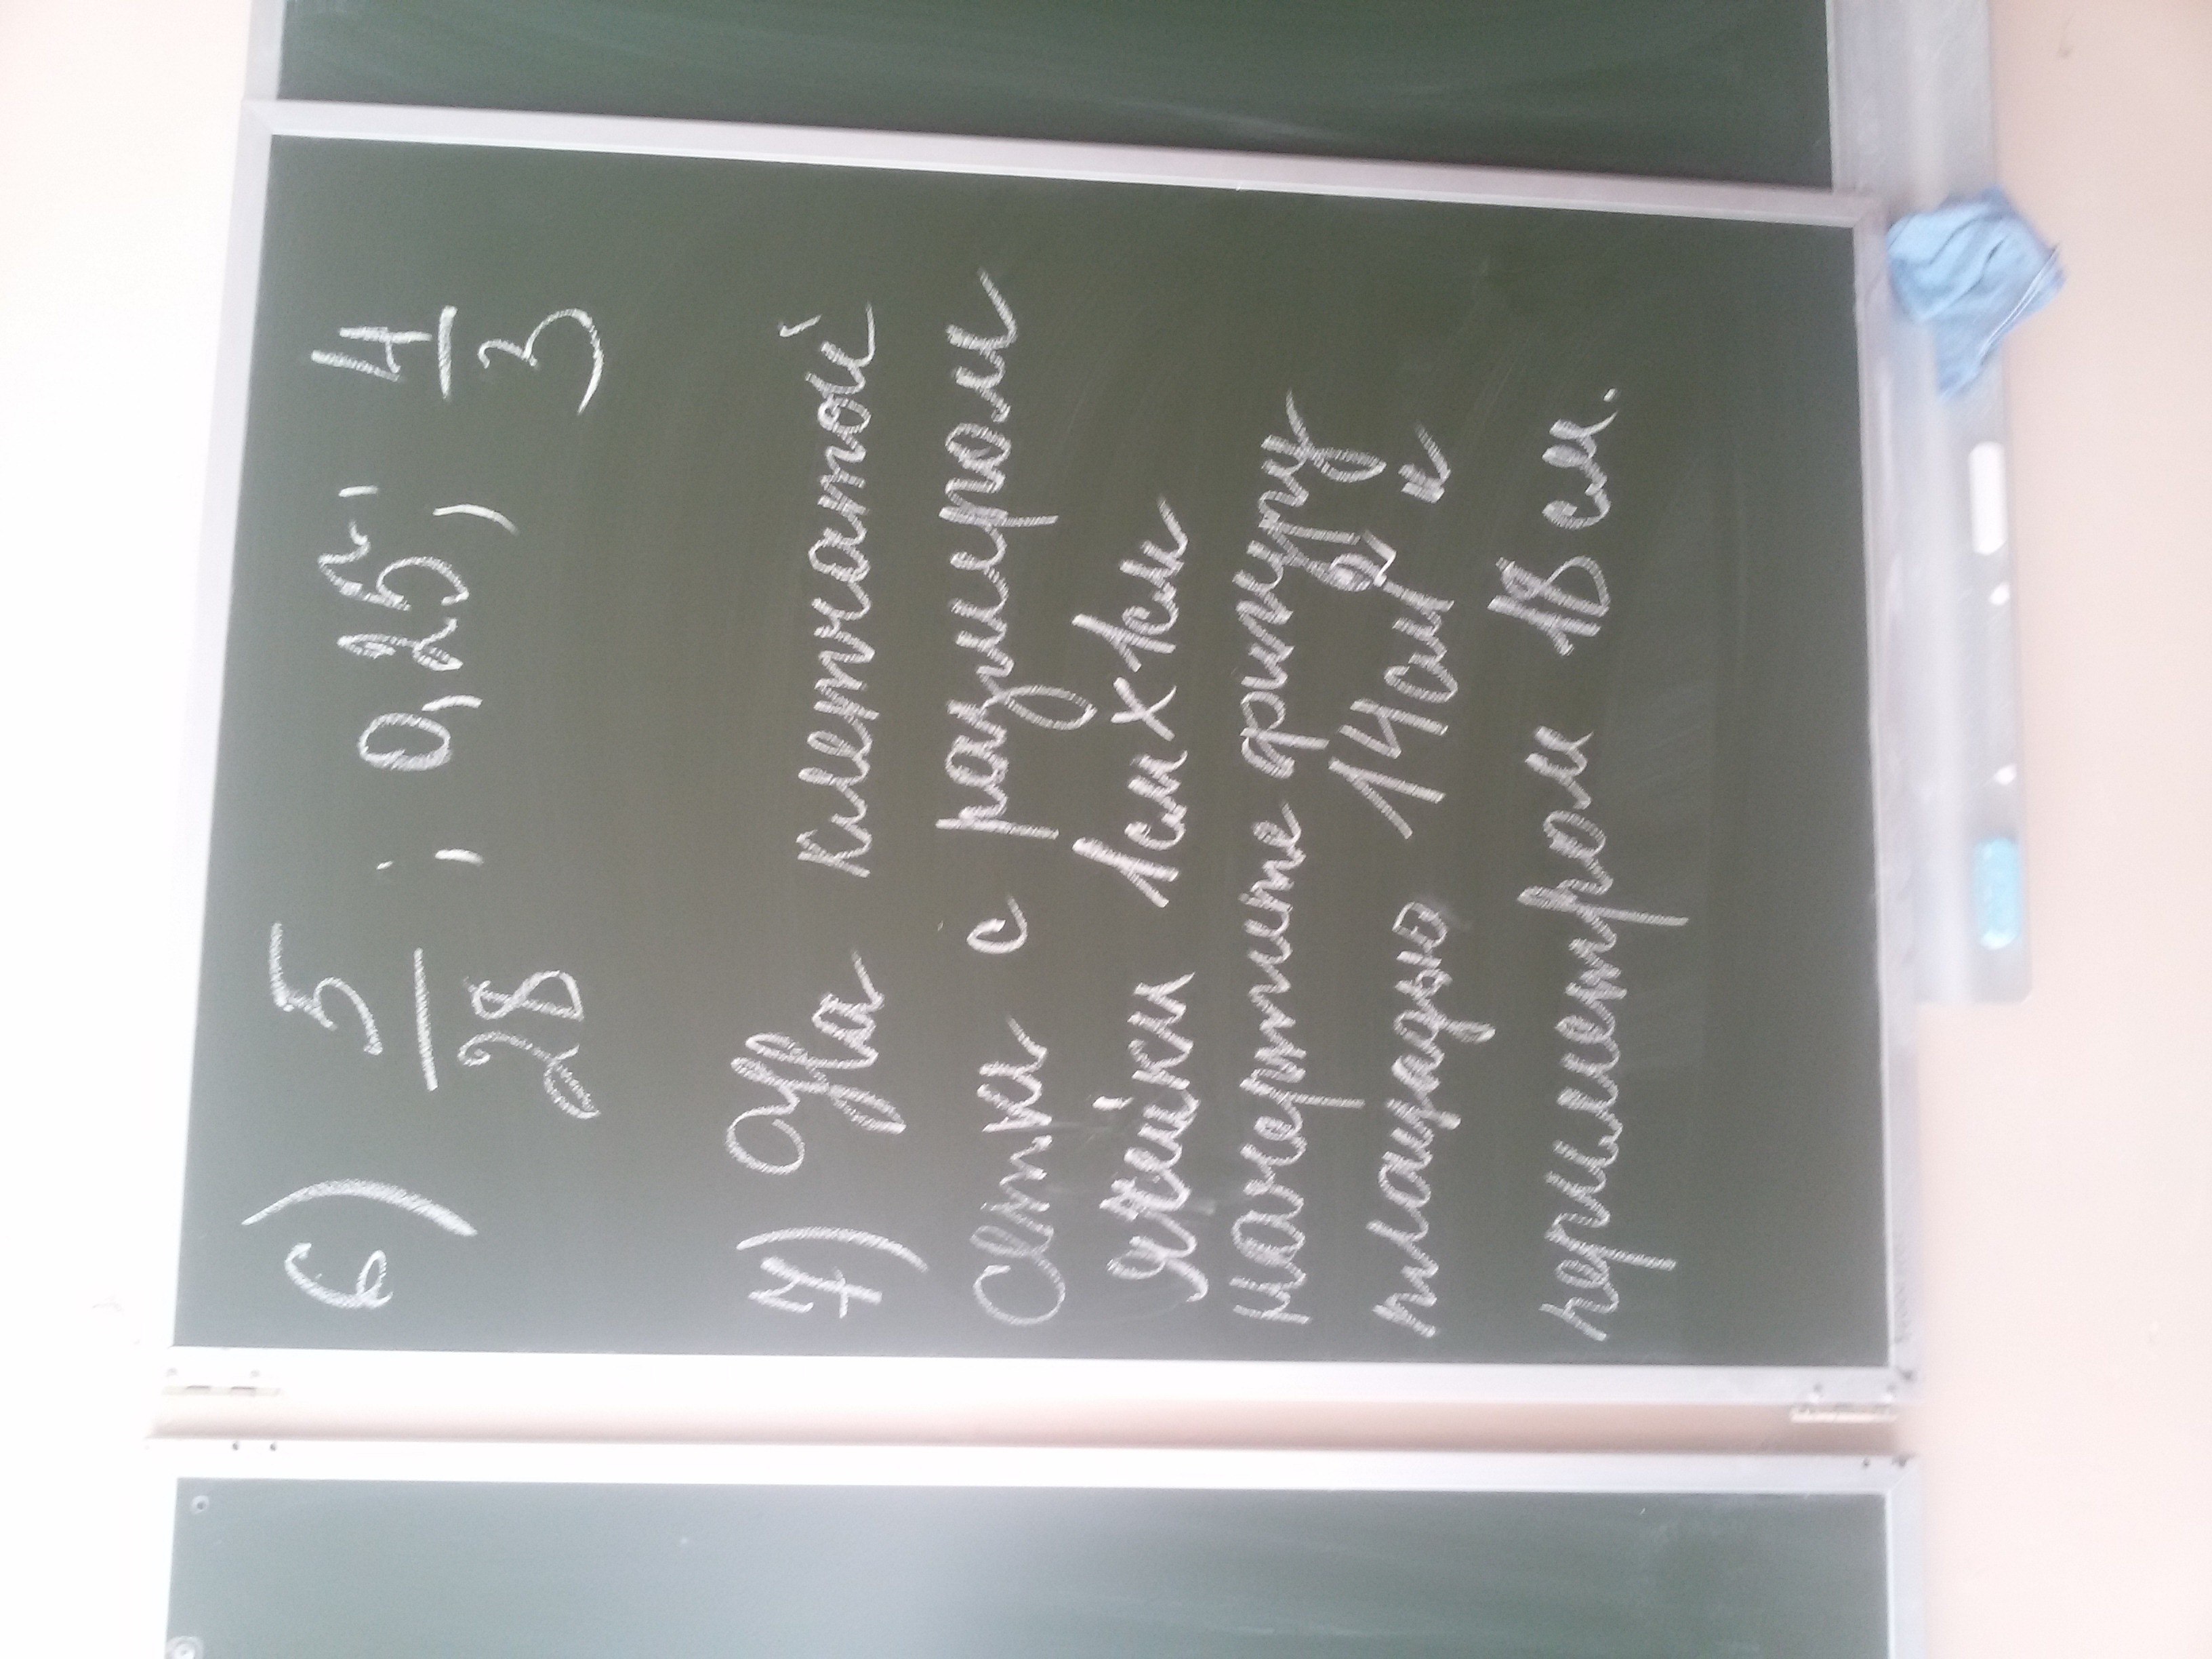 6) 5/28 ; 0,25 ; 4/3
7) На клетчатой
сетке с размером
ячейки 1см х 1см
начертите фигуру
площадью 14см² и
периметром 18 см.